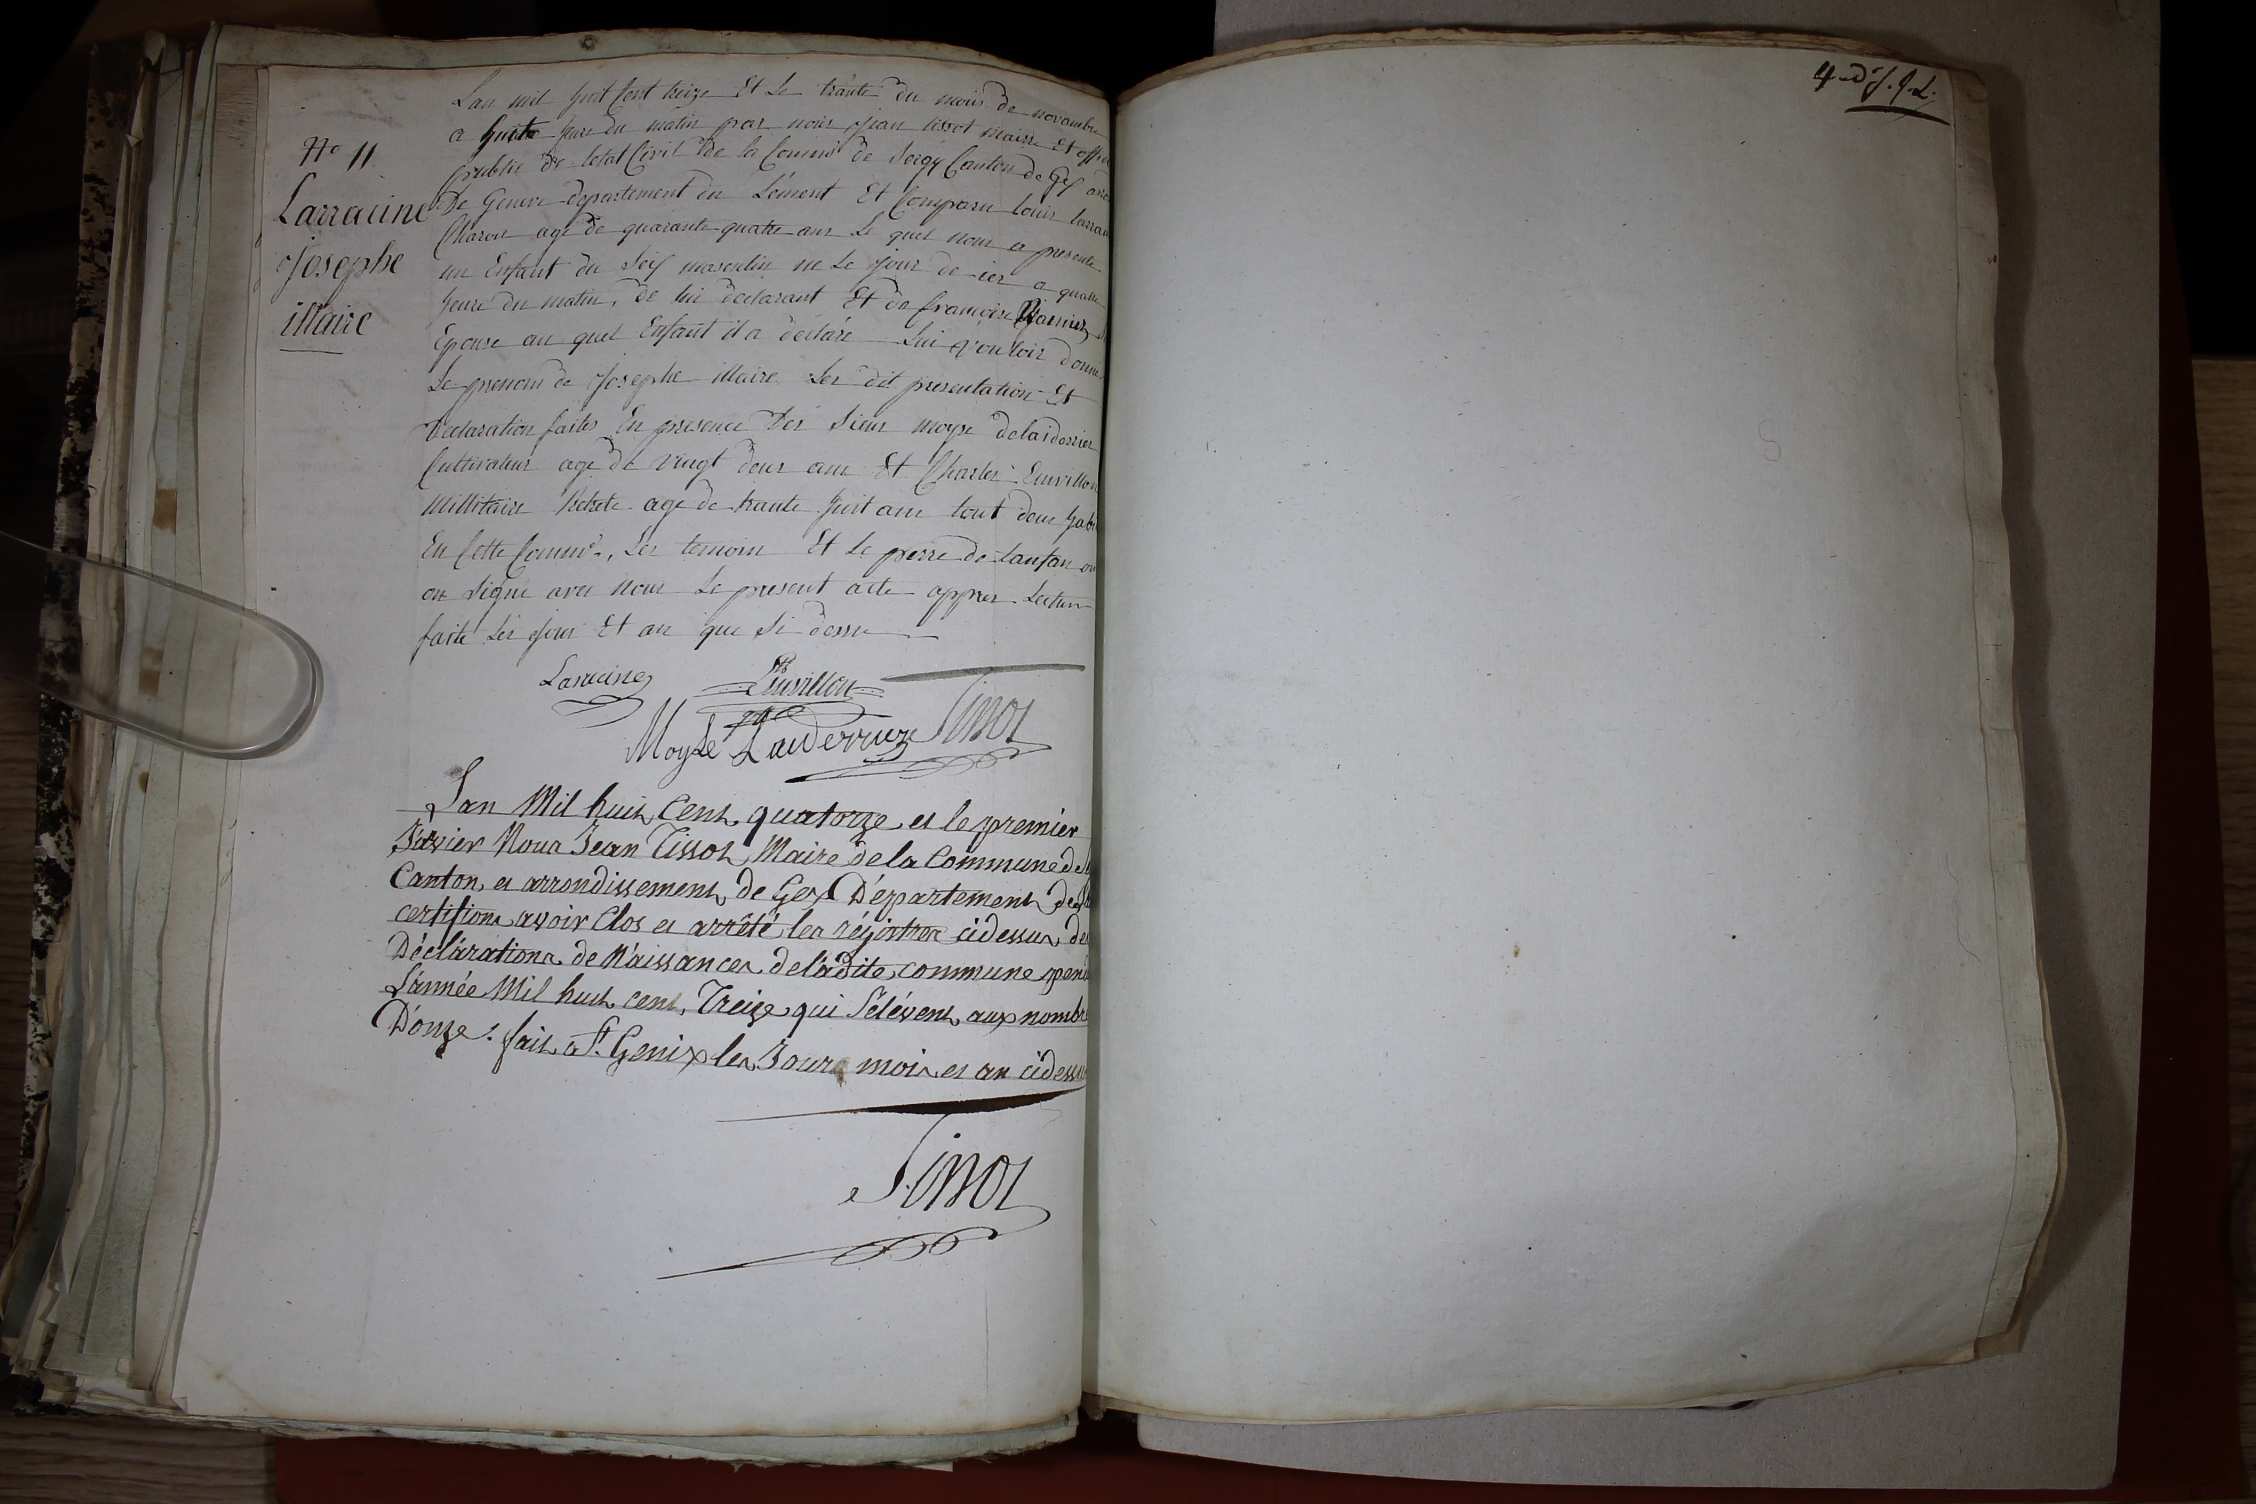 Nº 11
Larracine
Josephe
illaire
Lan mil huit Cent treize Et Le trante du mois de novambre
a huite heure du matin par nous Jean tissot maire Et offi
publie de letat Civil de la Commne de Sergy Canton de Gex
De Geneve departement du Lément Et Comparu louis larra
Charon agé de quarante quatre ans Le quel nous a presente
un Enfant du Sex masculin ne Le jour de ier a quatre
heure du matin, de lui declarant Et de francoise
Epouse au quel Enfant il a déclaré Lui vouloir donne
Le prenom de Josephe illaire Les dit presentation Et
Declaration faites En presence Des Sieur moyse delaiderrier
Cultivateur age de vingt deux ans Et Charles Emvillon
Millitaire Retrete age de trante huit ans tout deux hab
En Cette Commne, Les temoins Et Le perre de lanfan on
on signe avec nous Le present acte appres Lecture
faite Les jour Et an que Si dessu
Larracine
Emvillon
Moyse Laiderrier
Tissot
Lan Mil huit Cent quatorze et le premier
Javier Nous Jean Tissot Maire de la Commune de
Canton et arrondissement de Gex Département de
certifions avoir Clos et arrêté les régistres cidessus de
Déclarations de Naissances de ladite commune pen
L'année Mil huit cent Treize qui S'élévent aux nombre
D'onze. fait a St. Genix les Jours mois et an cidessus
Tissot